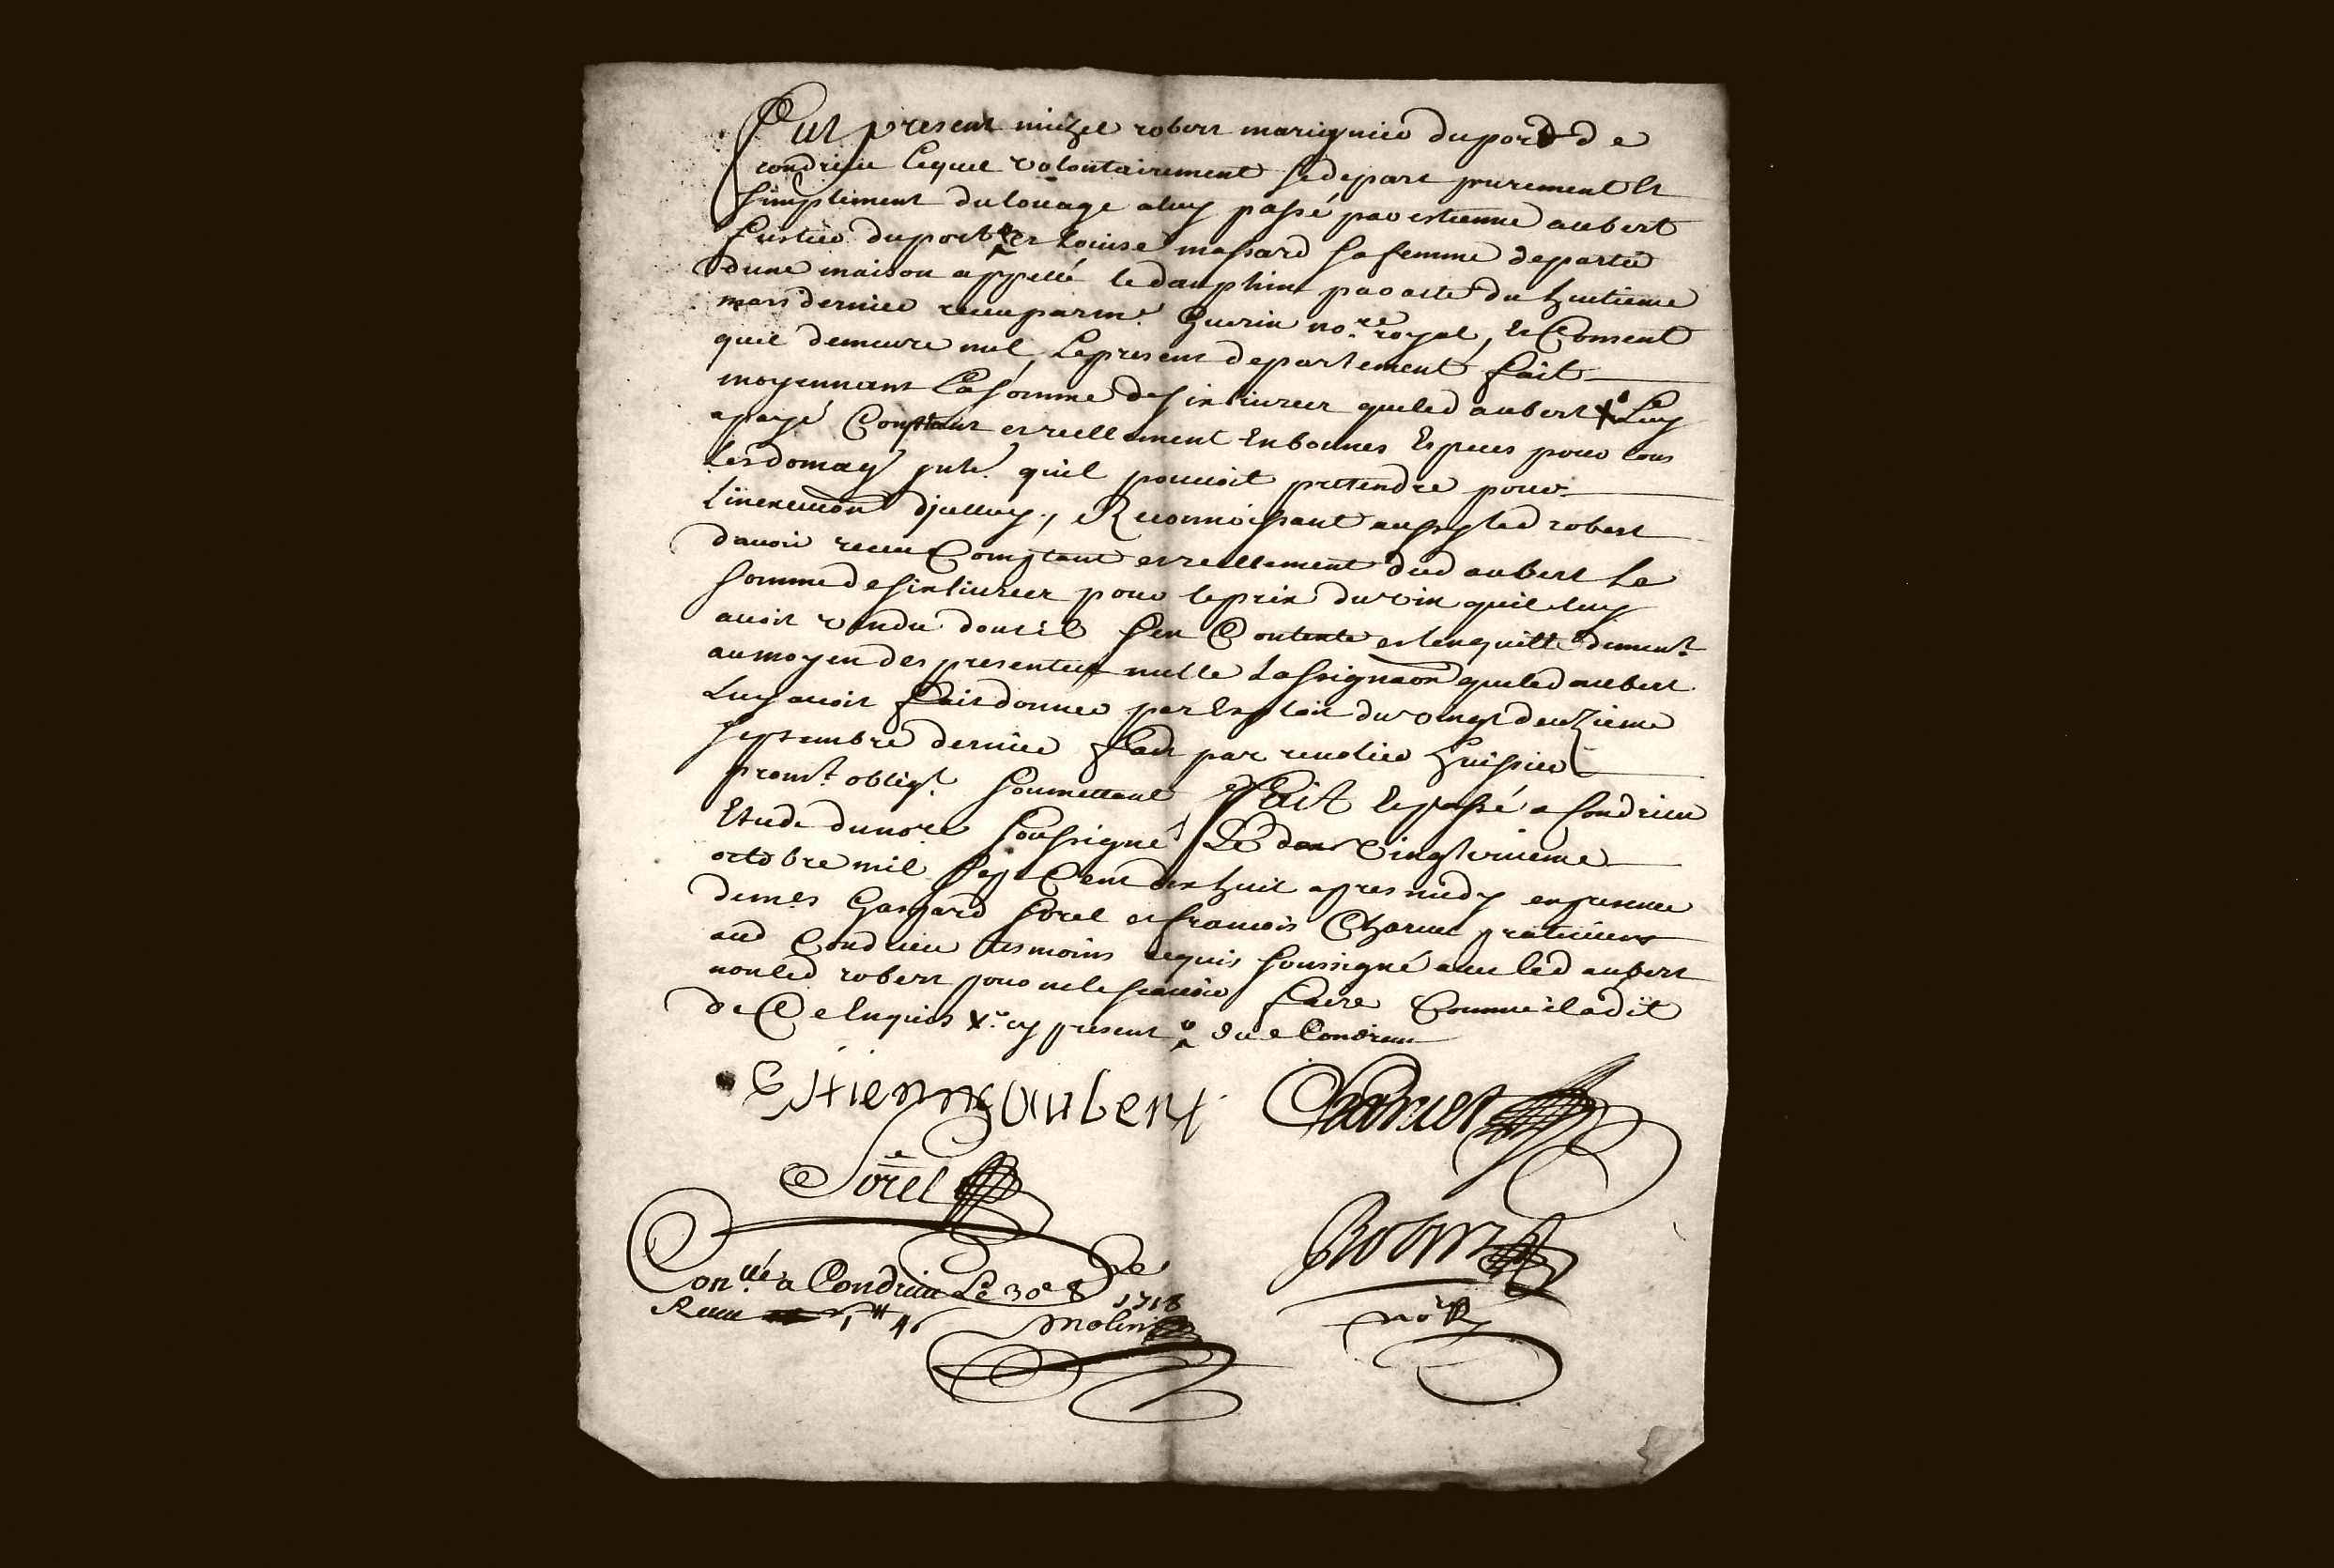 Fut present michel robert marignier du port de
condrieu lequel volontairement se depart purement Et
simplement du louage a luy passé par estienne aubert
fustier du port et Louise massard sa femme de partie
dune maison appellé le dauphin par acte du huitieme
mars dernier receu par me Guerin nore royal, Et Consent
quil demeure nul, Le present departement fait
moyennant La somme de six livres que led aubert x Luy
a payé Comptant et reellement En bonnes Especes pour tous
Les domages quil pouvoit pretendre pour
Linexecution dyceluy, Reconnoissant aussy led robert
davoir receu Comptant et reellement dud aubert La
somme de six livres pour le prix du vin quil luy
avoit vendu dont il sen Contente et len quitte demeut
au moyen des presentes nulle Lassignaon que led aubert
Luy avoit fait donner par Exploit du vingt deuzieme
septembre dernier fait par huissier
promt obligt soumettant Fait Et passé a Condrieu
Etude du nore soussigné Le vingt
octobre mil sept Cent dix huit apres midy en presence
de mes Gaspard sorel et francois Charvet praticiens
aud Condrieu tesmoins requis soussigné avec led aubert
non led robert pour ne le scavoir faire Comme il a dit
de Ce Enquis x cy present du Condrieu
Estienne aubert Charvet
Sorel
Robin
Conllé a Condrieu Le 30e 8bre 1718
Receu
Molin
nore R